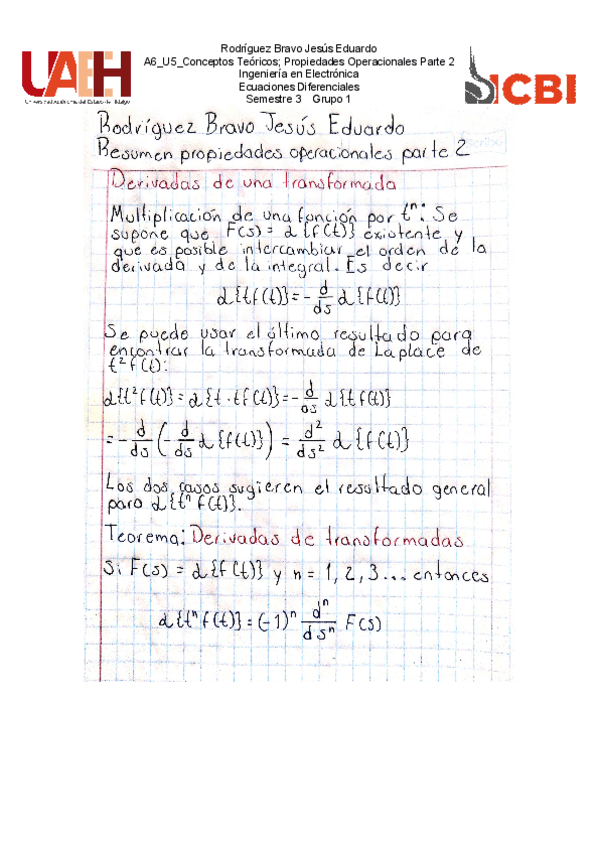 Rodríguez Bravo Jesús Eduardo
A6_U5_Conceptos Teóricos; Propiedades Operacionales Parte 2
Ingeniería en Electrónica
Ecuaciones Diferenciales
Semestre 3 Grupo 1
UAEH
Universidad Autónoma del Estado de Hidalgo
ICBI
Rodríguez Bravo Jesús Eduardo
Resumen propiedades operacionales parte 2
Derivadas de una transformada
Multiplicación de una función por tⁿ: Se
supone que F(s) = ℒ{f(t)} existente y
que es posible intercambiar el orden de la
derivada y de la integral. Es decir
ℒ{tf(t)} = - d/ds ℒ{f(t)}
Se puede usar el último resultado para
encontrar la transformada de Laplace de
t²f(t):
ℒ{t²f(t)} = ℒ{t · tf(t)} = - d/ds ℒ{tf(t)}
= - d/ds (- d/ds ℒ{f(t)}) = d²/ds² ℒ{f(t)}
Los dos casos sugieren el resultado general
para ℒ{tⁿf(t)}.
Teorema: Derivadas de transformadas
Si F(s) = ℒ{f(t)} y n = 1, 2, 3... entonces
ℒ{tⁿf(t)} = (-1)ⁿ dⁿ/dsⁿ F(s)